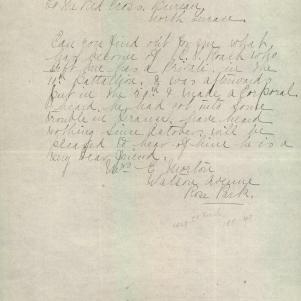 To The Red Cross Bureau,
North Terrace.
Can you find out for me what
has become of W. C. Roach who
left me has a Private in the
Battallion, & was afterwards
put in the & made a Corporal
I heard he had got into some
trouble in France, have heard
nothing since October, will be
pleased to hear of him he is a
Very Dear Friend.
Mrs E. Morton
Watson Avenue
Rose Park.